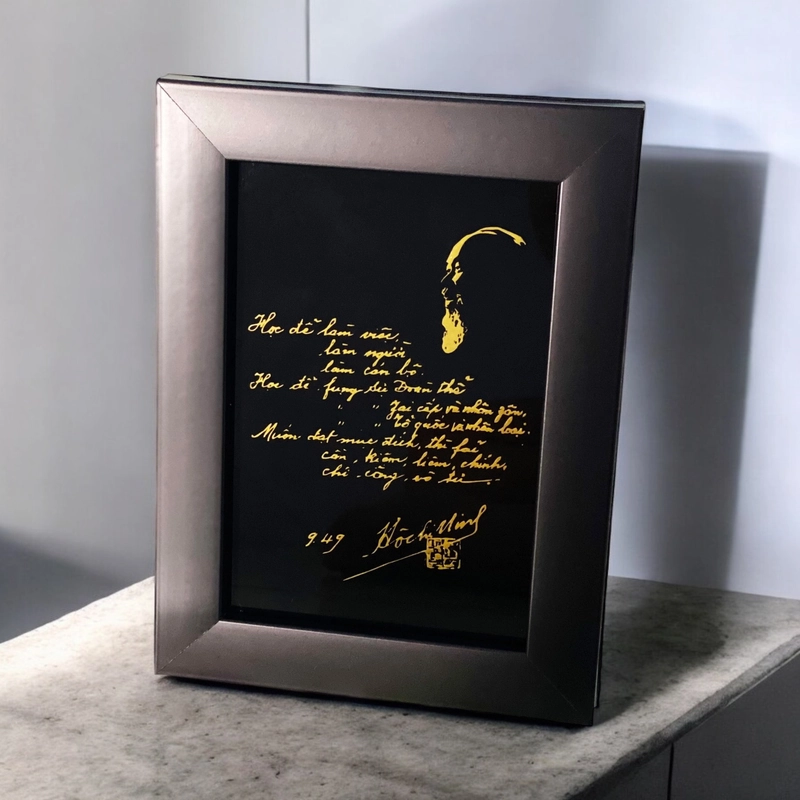 Học để làm việc,
làm người
làm cán bộ.
Học để fụng sự Đoàn thể
" " Jai cấp và nhân zân,
" " Tổ quốc và nhân loại.
Muốn đạt mục đích, thì fải
cần, kiệm, liêm, chính,
chí công, vô tư.
9.49 Hồ Chí Minh